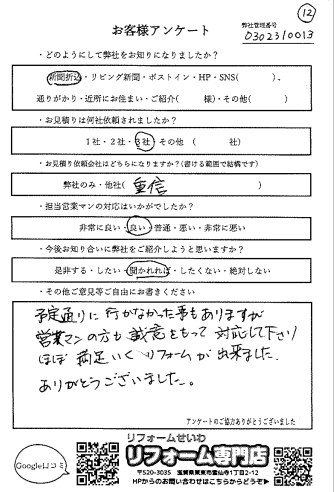 ⑫
お客様アンケート
弊社管理番号
0302310013
・どのようにして弊社をお知りになりましたか?
新聞折込・リビング新聞・ポストイン・HP・SNS( )、
通りがかり・近所にお住まい・ご紹介( 様)・その他( )
・お見積りは何社依頼されましたか?
1社・2社・3社 その他 ( 社)
・お見積り依頼会社はどちらになりますか?(書ける範囲で結構です)
弊社のみ・他社( 重信 )
・担当営業マンの対応はいかがでしたか?
非常に良い・良い・普通・悪い・非常に悪い
・今後お知り合いに弊社をご紹介しようと思いますか?
是非する・したい・聞かれれば・したくない・絶対しない
・その他ご意見等ご自由にお書きください
予定通りに行かなかった事もありますが
営業マンの方も誠意をもって対応して下さり
ほぼ満足いくリフォームが出来ました。
ありがとうございました。
アンケートのご協力ありがとうございました
Google口コミ
リフォームせいわ
リフォーム専門店
〒520-3035 滋賀県栗東市霊仙寺1丁目2-12
HPからのお問い合わせはこちらからどうぞ▶